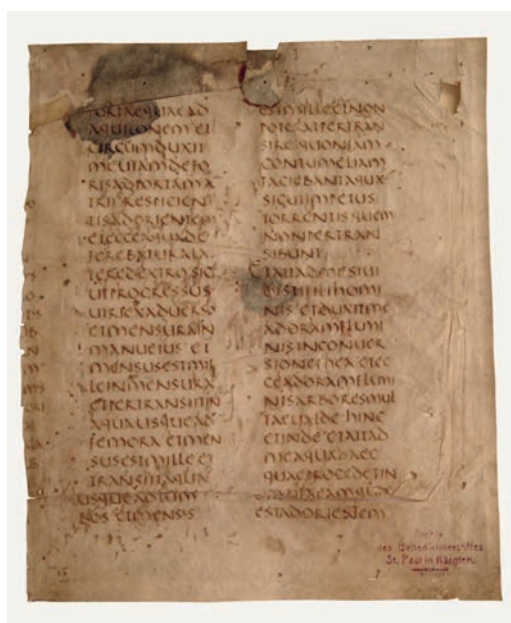 PORTAEQUAEAD
AQUILONEMET
CIRCUMDUXIT
MEUIAMDEFO
RISADPORTAMA
TRIIRESPICIEN
TISADORIENTEM
ETECCEAQUADE
FEREBATURALA
TEREDEXTROSIC
UTPROGRESSUS
UIRIEXADUERSO
ETMENSURAIN
MANUEIUSET
MENSUSESTMIL
LEINMENSURA
ETPERTRANSIITIN
AQUAUSQUEAD
FEMORAETMEN
SUSESTMILLEET
TRANSIIT
USQUEADLUM
BOSETMENSUS
ESTMILLEETNON
POTERATPERTRAN
SIREQUONIAM
CONTUMELIAM
FACIEBANTAQUAE
SICUTIMPETUS
TORRENTISQUEM
NONPERTRAN
SIBUNT
ETAITADMESIUI
DISTIFILIHOMI
NISETDUXITME
ADORAMFLUMI
NISINCONUER
SIONEMEAETEC
CEADORAMFLUMI
NISARBORESMUL
TAEUALDEHINC
ETINDEETAITAD
MEAQUAHAEC
QUAEPROCEDETIN
GALILAEAMQUAE
ESTADORIENTEM
Archiv
des Benediktinerstiftes
St. Paul in Kärnten.